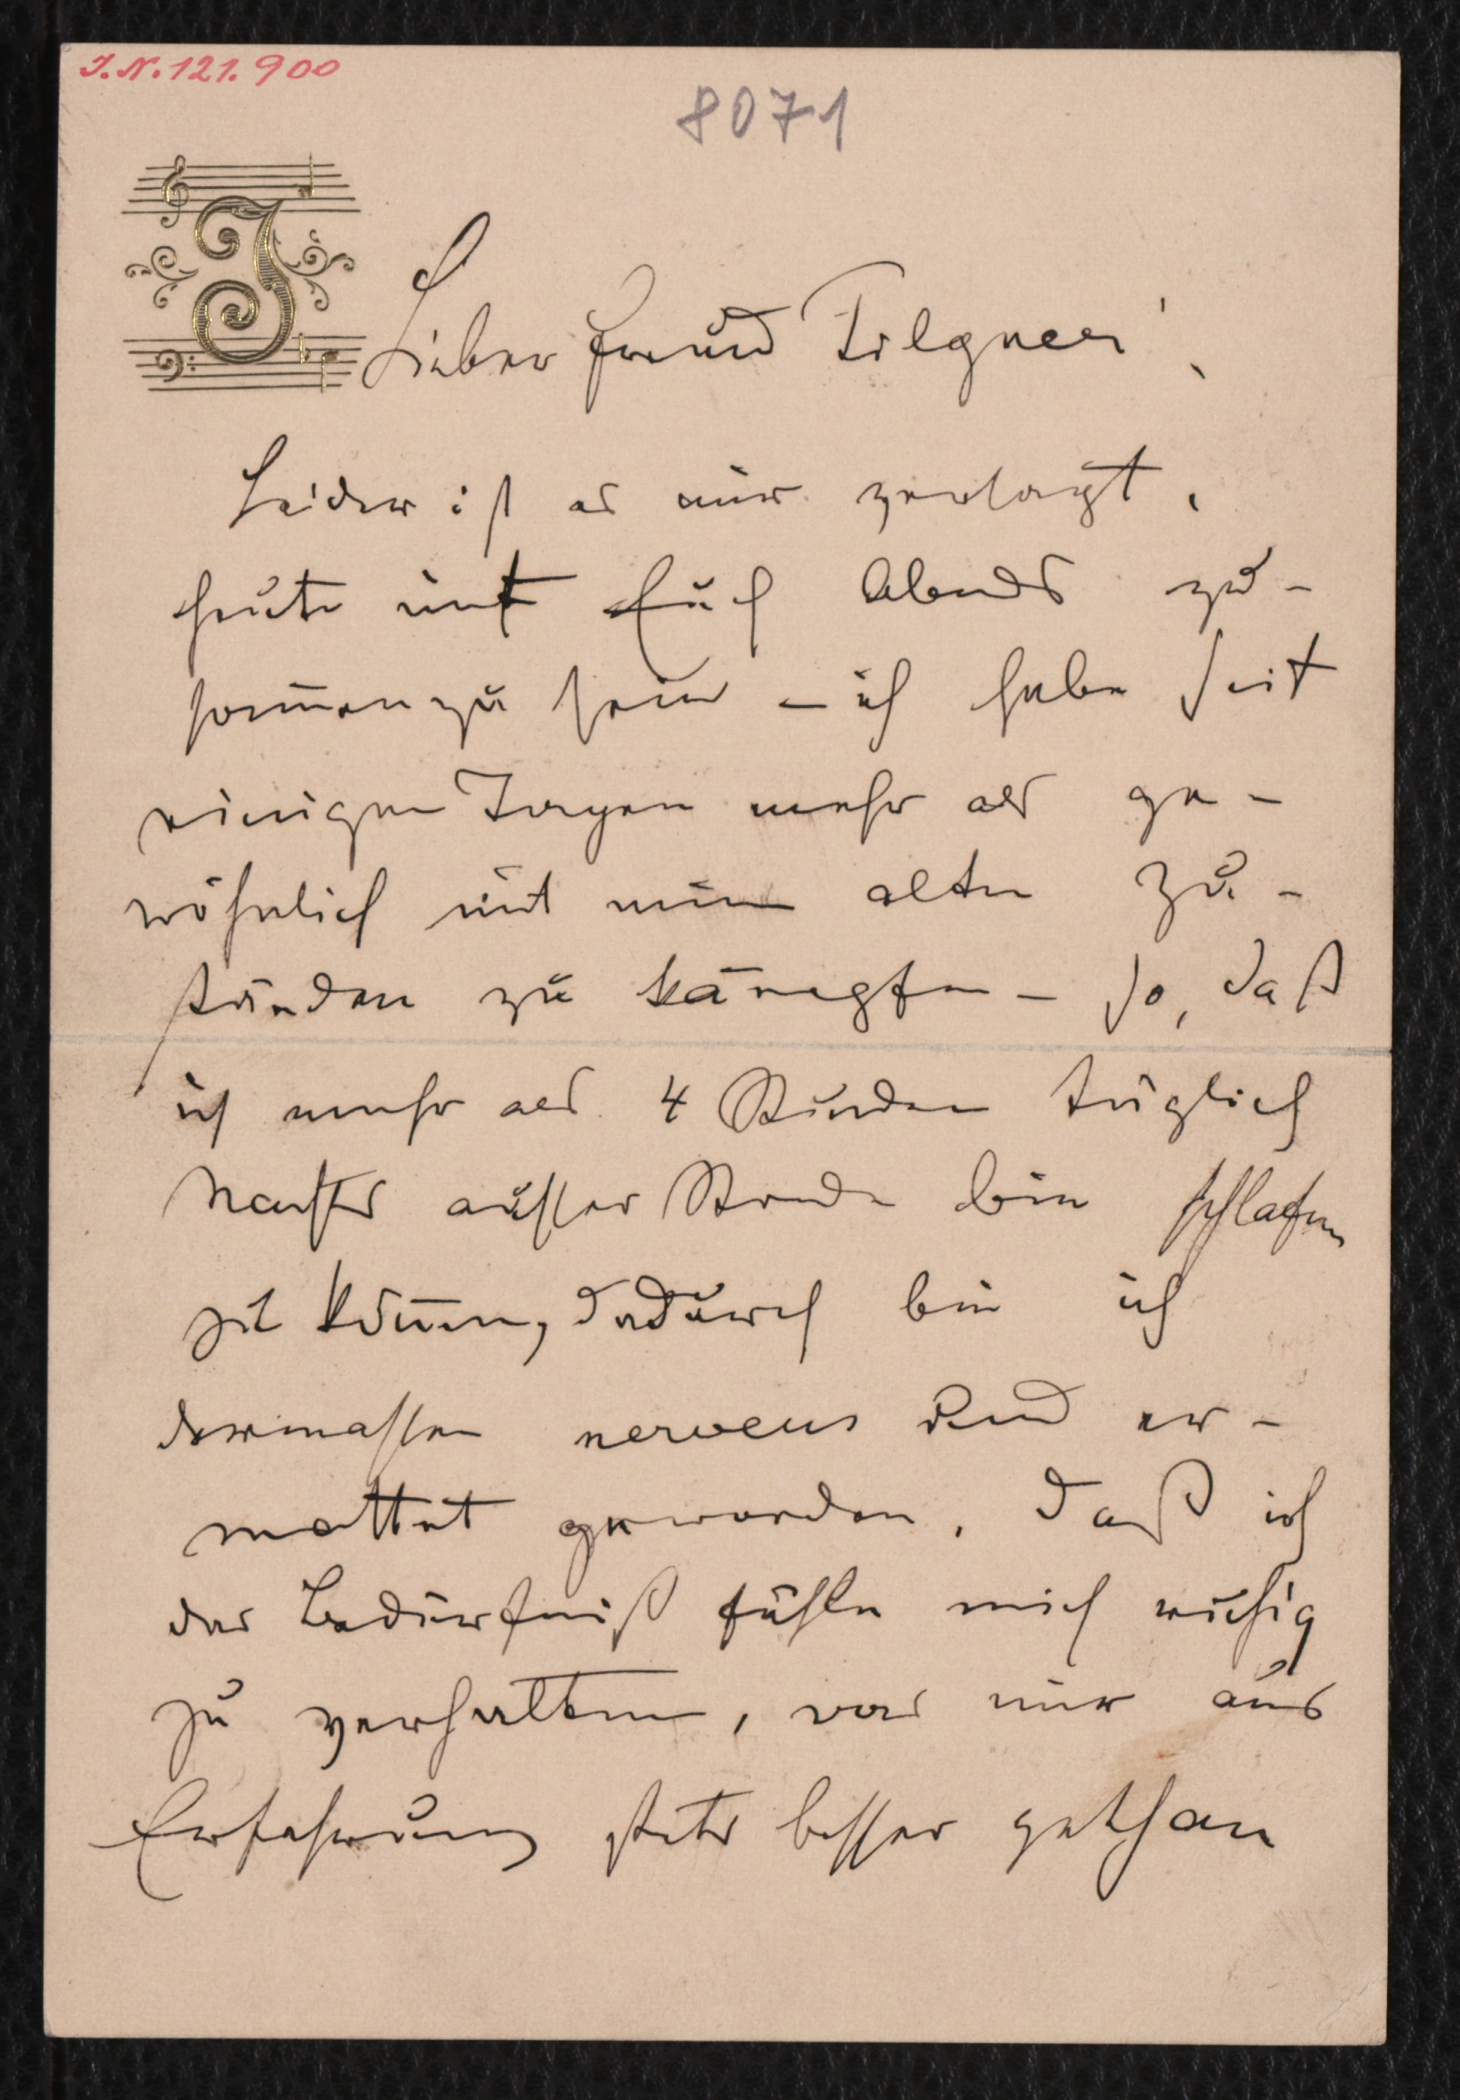 I.N. 121.900
8071
J
Lieber Freund Tilgner!
Leider ist es mir versagt,
heute mit Euch Abends zu-
sam̅enzu sein – ich habe seit
einigen Tagen mehr als ge-
wöhnlich mit mein alten Zu-
ständen zu kämpfen – so, daß
ich mehr als 4 Stunden täglich
Nachts ausser Stande bin schlafen
zu kön̅en, dadurch bin ich
dermassen nerveus und er-
mattet geworden, daß ich
das Bedürfniß fühle mich ruhig
zu verhalten, was mir aus
Erfahrung stets besser gethan